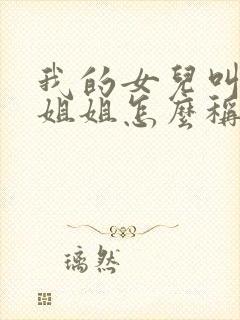 我的女兒叫
姐姐怎麼稱
璃然